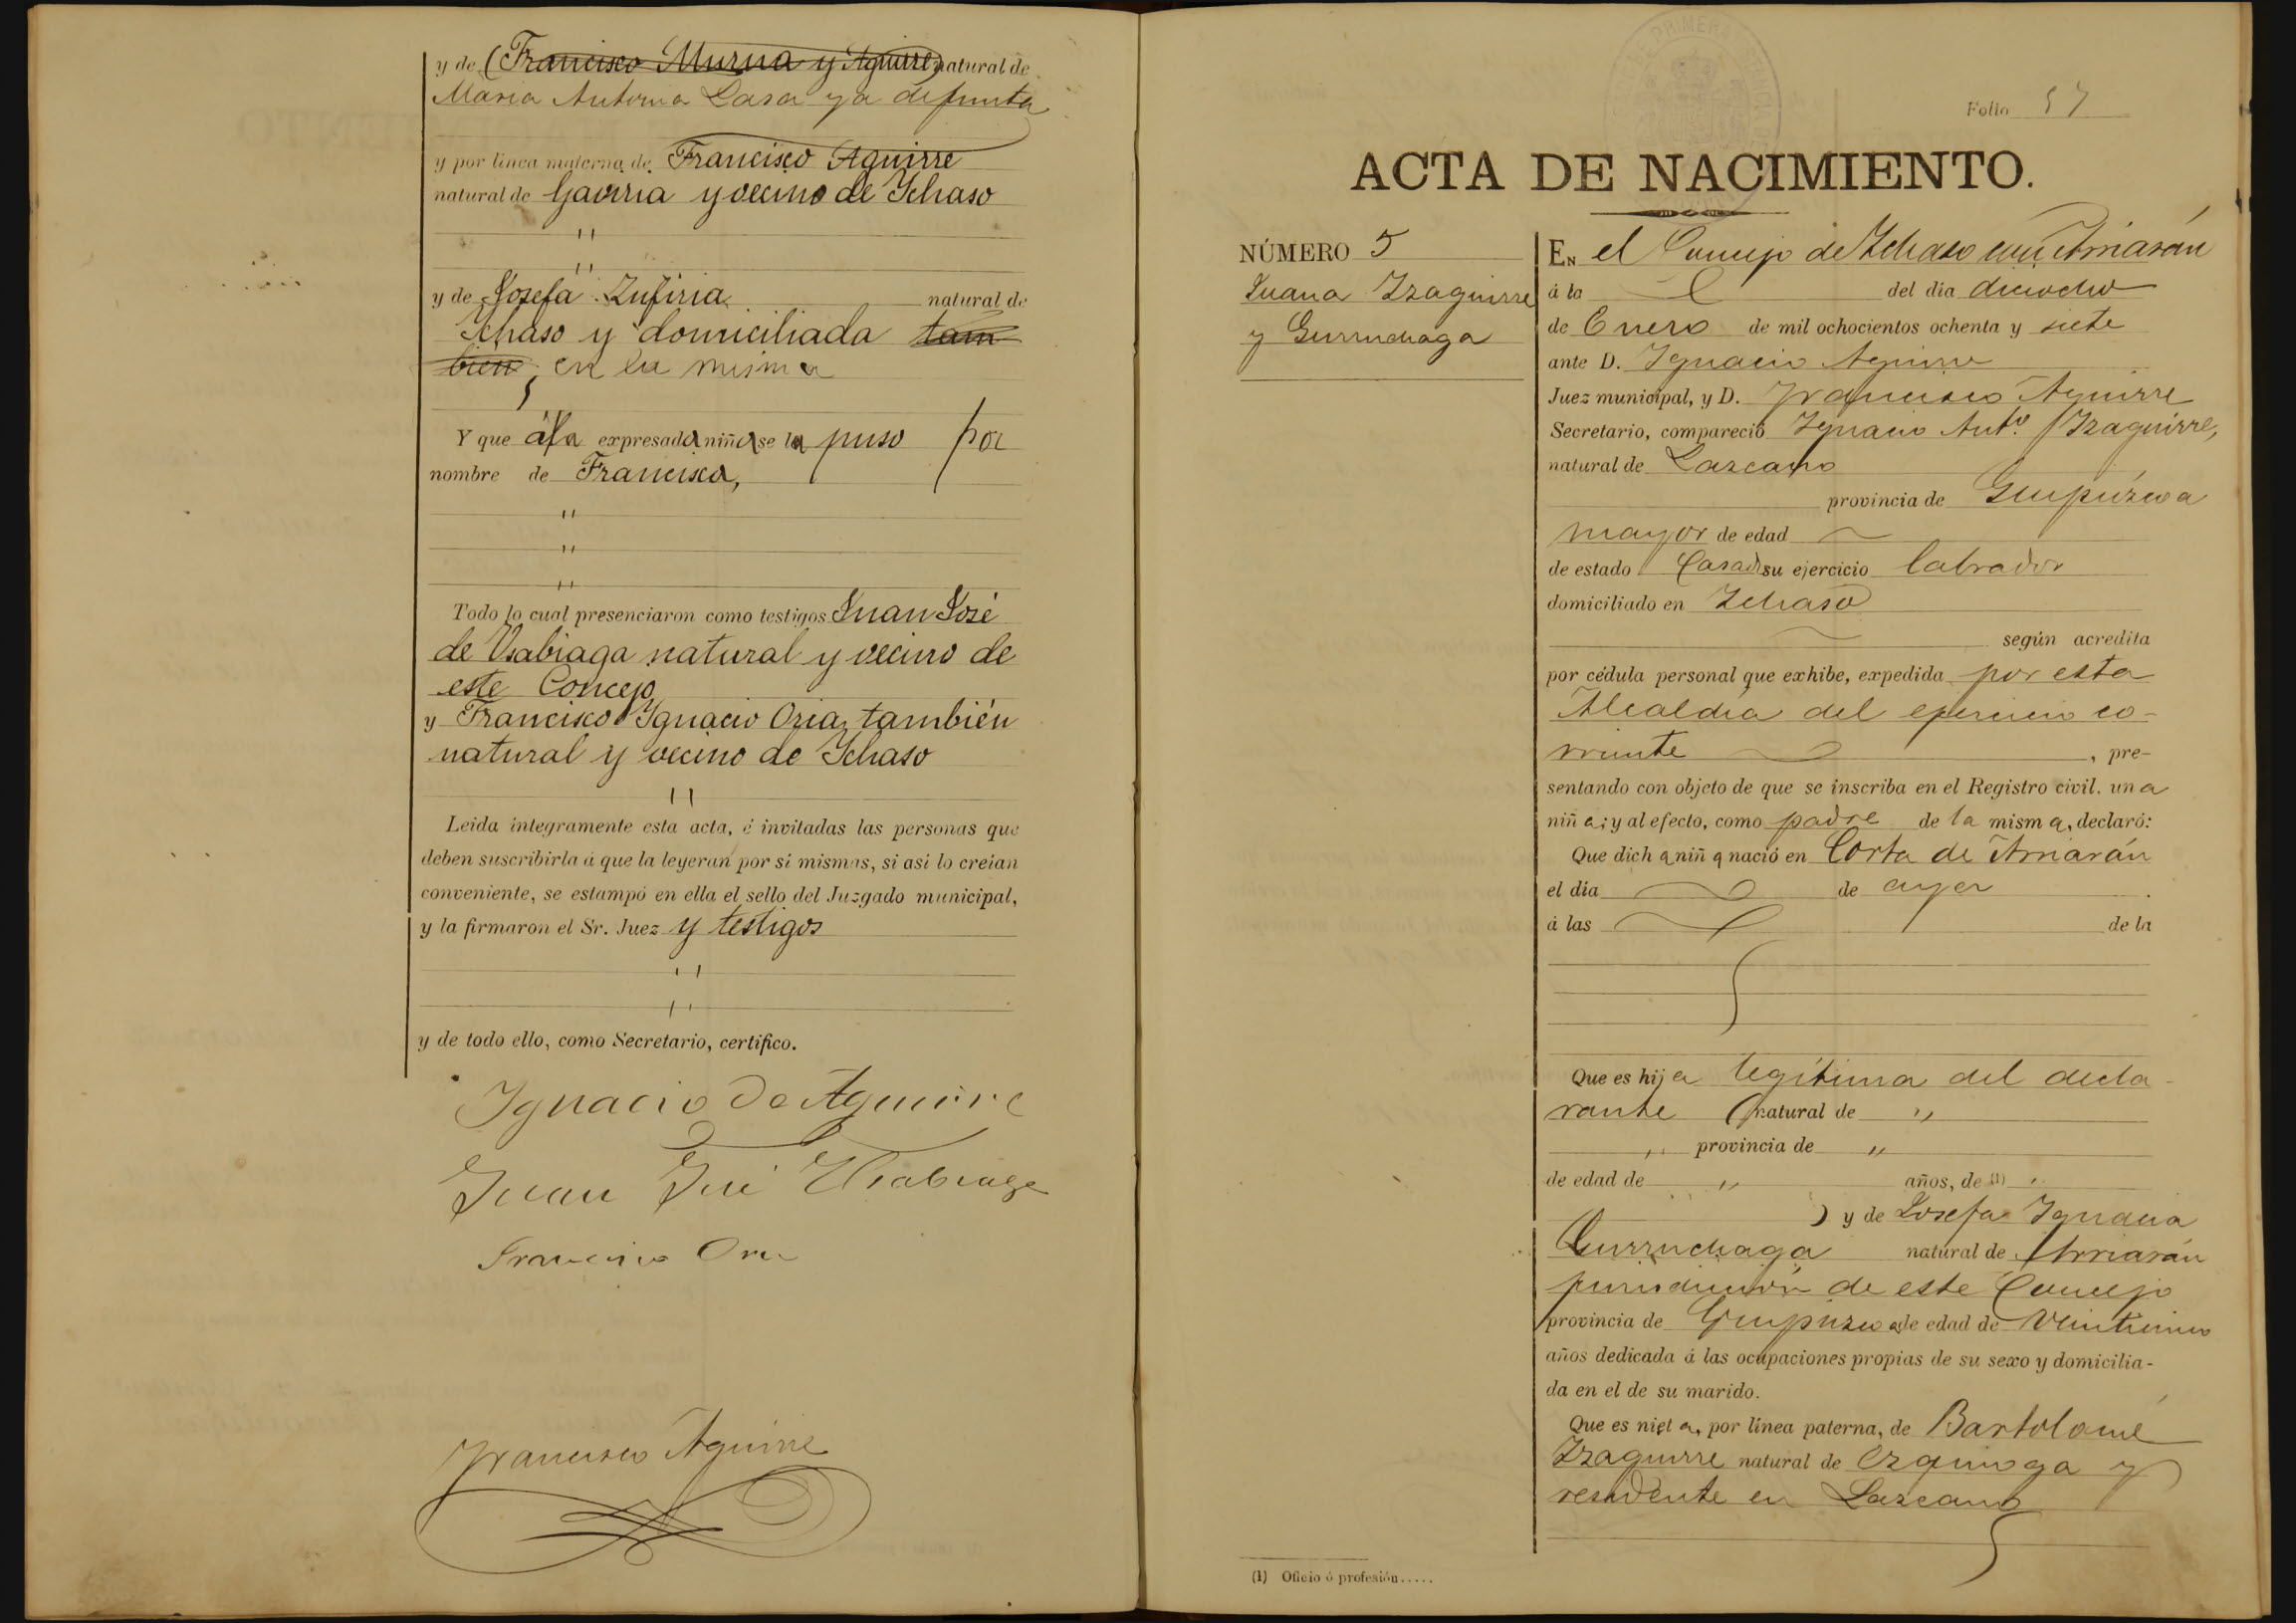 y de (Francisco Murua y Aguirre) natural de
Maria Antonia Lasa ya defunta
y por línea materna, de Francisco Aguirre
natural de Gaviria y vecino de Ichaso
"
"
y de Josefa Zufiria natural de
Ichaso y domiciliada tam
bien, en la misma
Y que á la expresada niña se la puso por
nombre de Francisca,
"
"
"
Todo lo cual presenciaron como testigos Juan José
de Usabiaga natural y vecino de
este Concejo
y Francisco Ignacio Oria, también
natural y vecino de Ichaso
"
Leida íntegramente esta acta, é invitadas las personas que
deben suscribirla á que la leyeran por sí mismas, si así lo creían
conveniente, se estampó en ella el sello del Juzgado municipal,
y la firmaron el Sr. Juez y testigos
"
"
y de todo ello, como Secretario, certifico.
Ignacio de Aguirre
Juan José Usabiaga
Francisco Oria
Francisco Aguirre
Folio 57
ACTA DE NACIMIENTO.
NÚMERO 5
Juana Izaguirre
y Gurruchaga
EN el Concejo de Ichaso con Arriarán
á la del día dieciocho
de Enero de mil ochocientos ochenta y siete
ante D. Ignacio Aguirre
Juez municipal, y D. Francisco Aguirre
Secretario, compareció Ignacio Antº Izaguirre,
natural de Lazcano
provincia de Guipúzcoa
mayor de edad
de estado Casado su ejercicio labrador
domiciliado en Ichaso
según acredita
por cédula personal que exhibe, expedida por esta
Alcaldía del ejercicio co-
rriente , pre-
sentando con objeto de que se inscriba en el Registro civil. una
niña; y al efecto, como padre de la misma, declaró:
Que dicha niña nació en Corta de Arriarán
el día de ayer .
á las de la
Que es hija legítima del decla-
rante (natural de "
" provincia de "
de edad de " años, de (1) "
) y de Josefa Ignacia
Gurruchaga natural de Arriarán
jurisdicción de este Concejo
provincia de Guipúzcoa de edad de veinticinco
años dedicada á las ocupaciones propias de su sexo y domicilia-
da en el de su marido.
Que es nieta, por línea paterna, de Bartolomé
Izaguirre natural de Ezquioga y
residente en Lazcano
(1) Oficio ó profesión.....